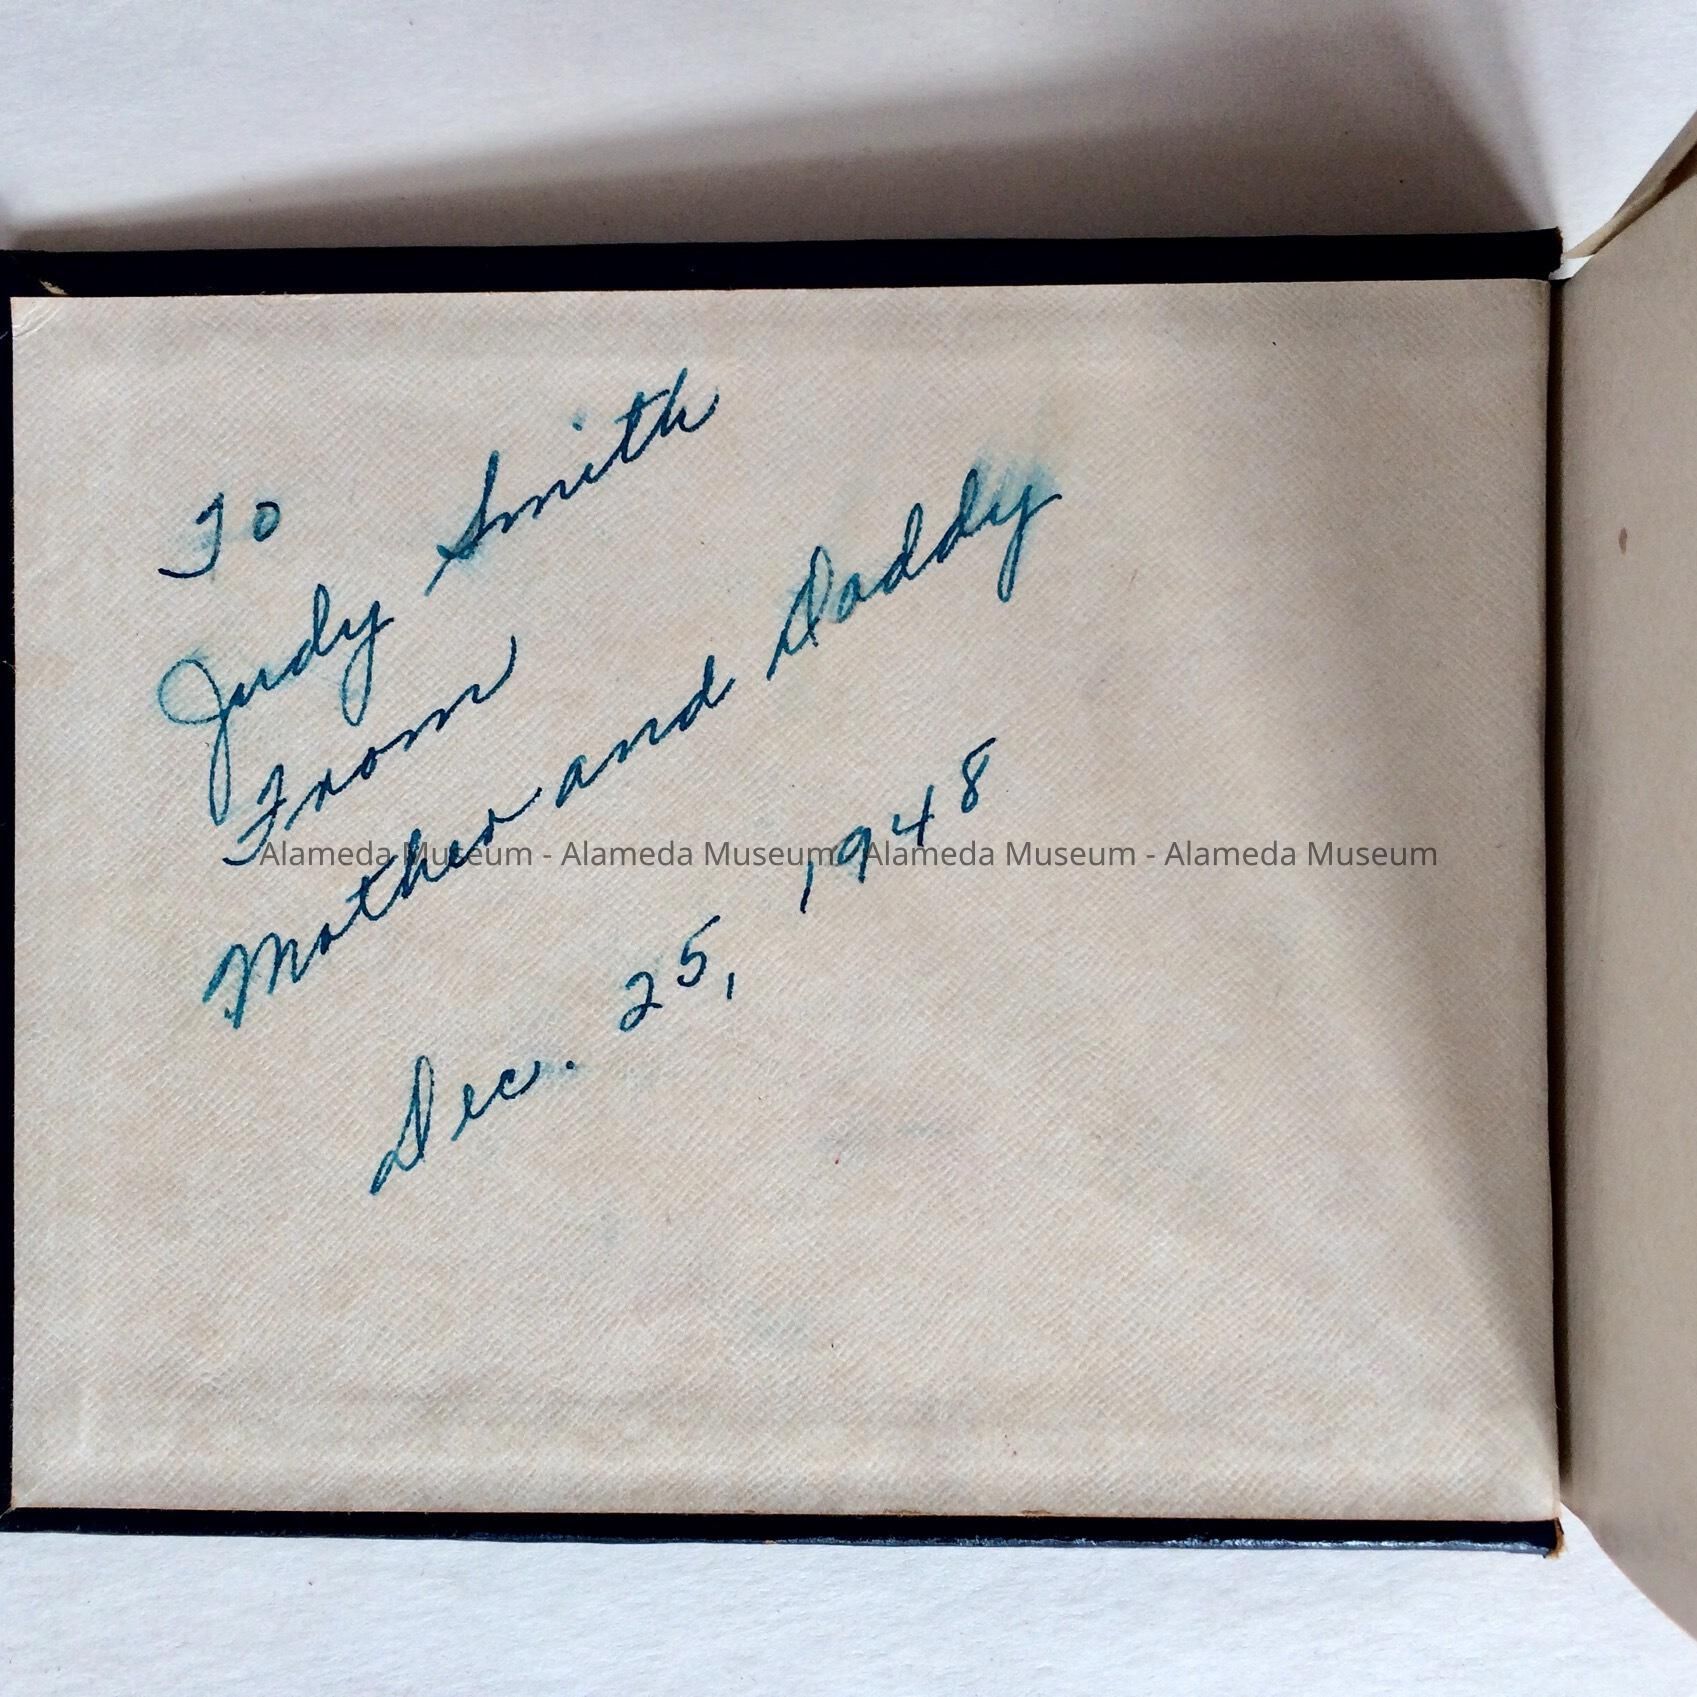 To
Judy Smith
From
Mother and Daddy
Dec. 25, 1948
Alameda Museum - Alameda Museum - Alameda Museum - Alameda Museum